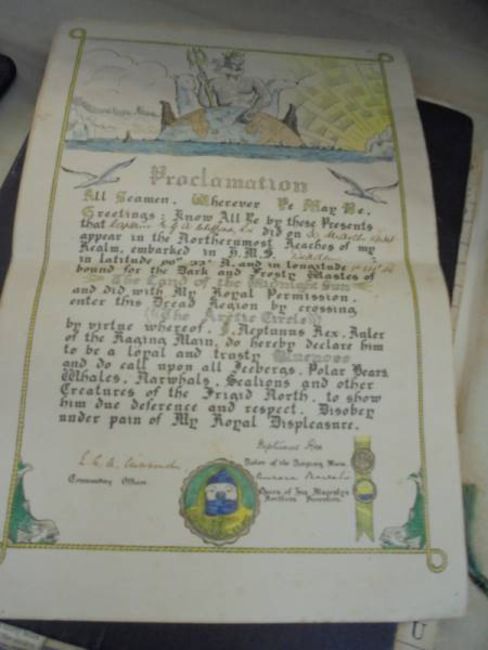 Proclamation
All Seamen, Wherever Ye May Be,
Greetings; Know All Ye by these Presents
that did on
appear in the Northernmost Reaches of my
Realm, embarked in H.M.S.
in latitude N. and in longitude
bound for the Dark and Frosty Wastes of
The Land of the Midnight Sun
and did, with My Royal Permission,
enter this Dread Region by crossing
The Arctic Circle
by virtue whereof, I, Neptunus Rex, Ruler
of the Raging Main, do hereby declare him
to be a loyal and trusty
and do call upon all Icebergs, Polar Bears,
Whales, Narwhals, Sealions and other
Creatures of the Frigid North, to show
him due deference and respect. Disobey
under pain of My Royal Displeasure.
Neptunus Rex
Ruler of the Raging Main.
Commanding Officer
Aurora Borealis
Queen of His Majesty's
Northern Provinces.